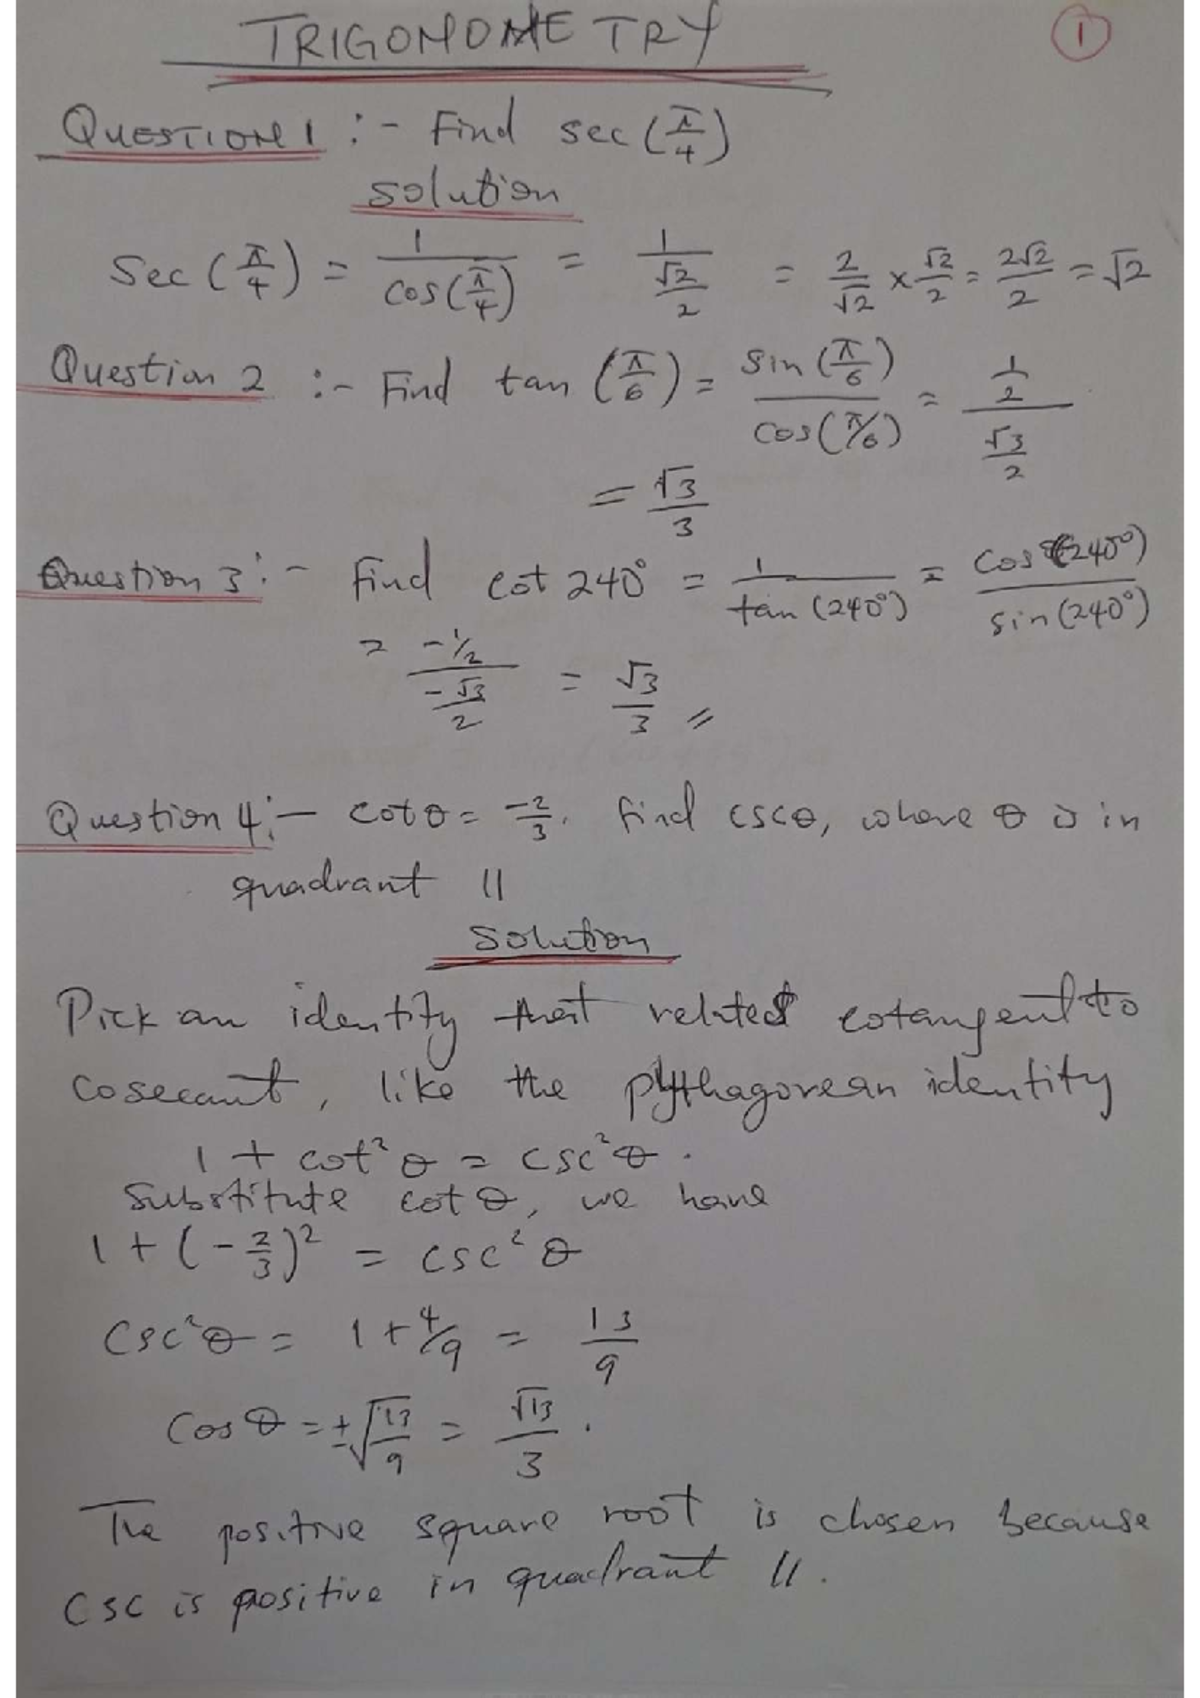 TRIGONOMETRY
1
QUESTION 1 :- Find sec(π/4)
solution
Sec(π/4) = 1/cos(π/4) = 1/(√2/2) = 2/√2 × √2/2 = 2√2/2 = √2
Question 2 :- Find tan(π/6) = sin(π/6)/cos(π/6) = (1/2)/(√3/2)
= √3/3
Question 3:- Find cot 240° = 1/tan(240°) = cos(240°)/sin(240°)
= (-1/2)/(-√3/2) = √3/3 //
Question 4:- cotθ = -2/3. find cscθ, where θ is in
quadrant II
Solution
Pick an identity that relates cotangent to
cosecant, like the pythagorean identity
1 + cot²θ = csc²θ.
Substitute cotθ, we have
1 + (-2/3)² = csc²θ
Csc²θ = 1 + 4/9 = 13/9
Cosθ = ±√(13/9) = √13/3.
The positive square root is chosen because
csc is positive in quadrant II.